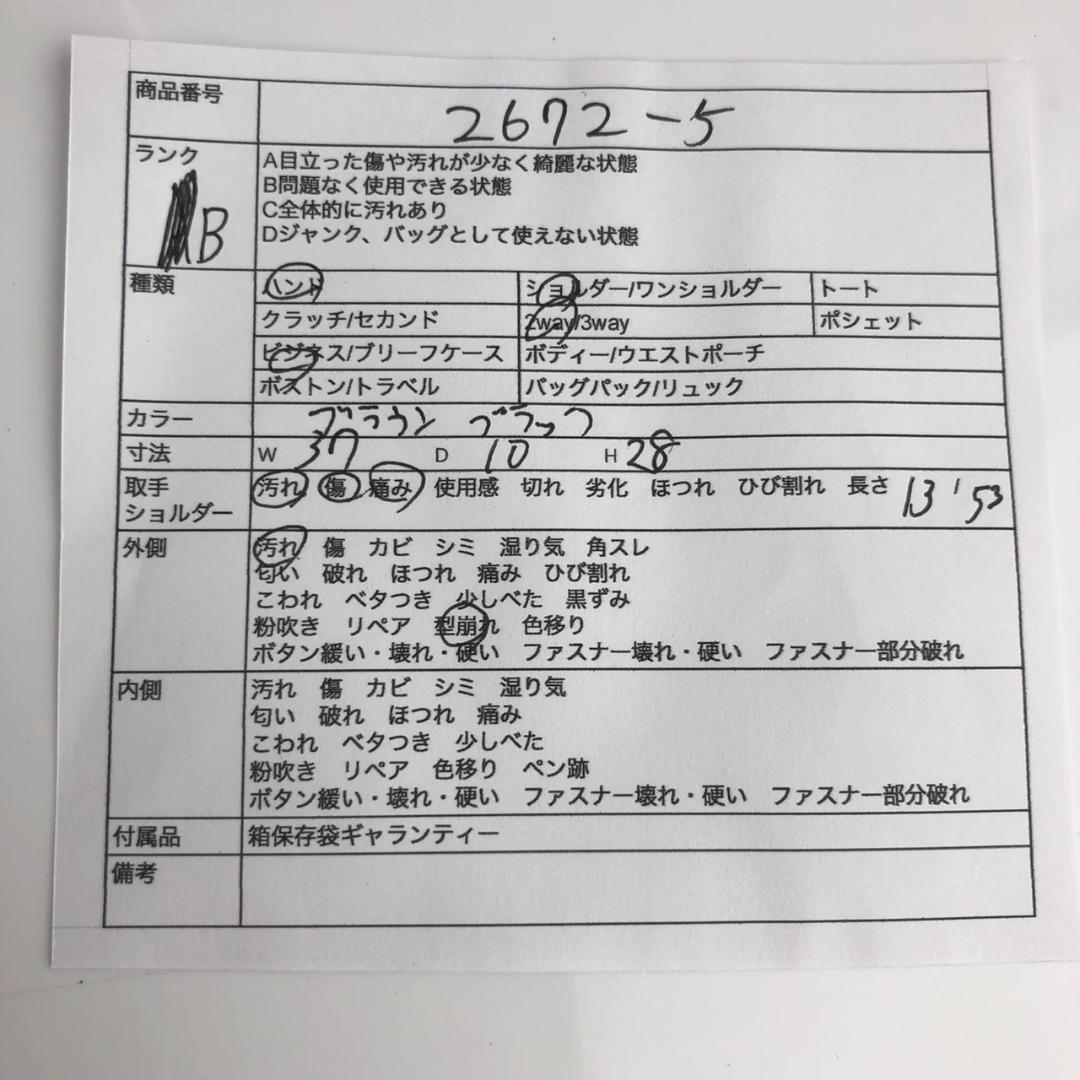 商品番号 2672-5
ランク B
A目立った傷や汚れが少なく綺麗な状態
B問題なく使用できる状態
C全体的に汚れあり
Dジャンク、バッグとして使えない状態
種類 ハンド ショルダー/ワンショルダー トート
クラッチ/セカンド 2way/3way ポシェット
ビジネス/ブリーフケース ボディー/ウエストポーチ
ボストン/トラベル バッグパック/リュック
カラー ブラウン ブラック
寸法 W 37 D 10 H 28
取手 汚れ 傷 痛み 使用感 切れ 劣化 ほつれ ひび割れ 長さ 13 ' 53
ショルダー
外側 汚れ 傷 カビ シミ 湿り気 角スレ
匂い 破れ ほつれ 痛み ひび割れ
こわれ ベタつき 少しべた 黒ずみ
粉吹き リペア 型崩れ 色移り
ボタン緩い・壊れ・硬い ファスナー壊れ・硬い ファスナー部分破れ
内側 汚れ 傷 カビ シミ 湿り気
匂い 破れ ほつれ 痛み
こわれ ベタつき 少しべた
粉吹き リペア 色移り ペン跡
ボタン緩い・壊れ・硬い ファスナー壊れ・硬い ファスナー部分破れ
付属品 箱保存袋ギャランティー
備考